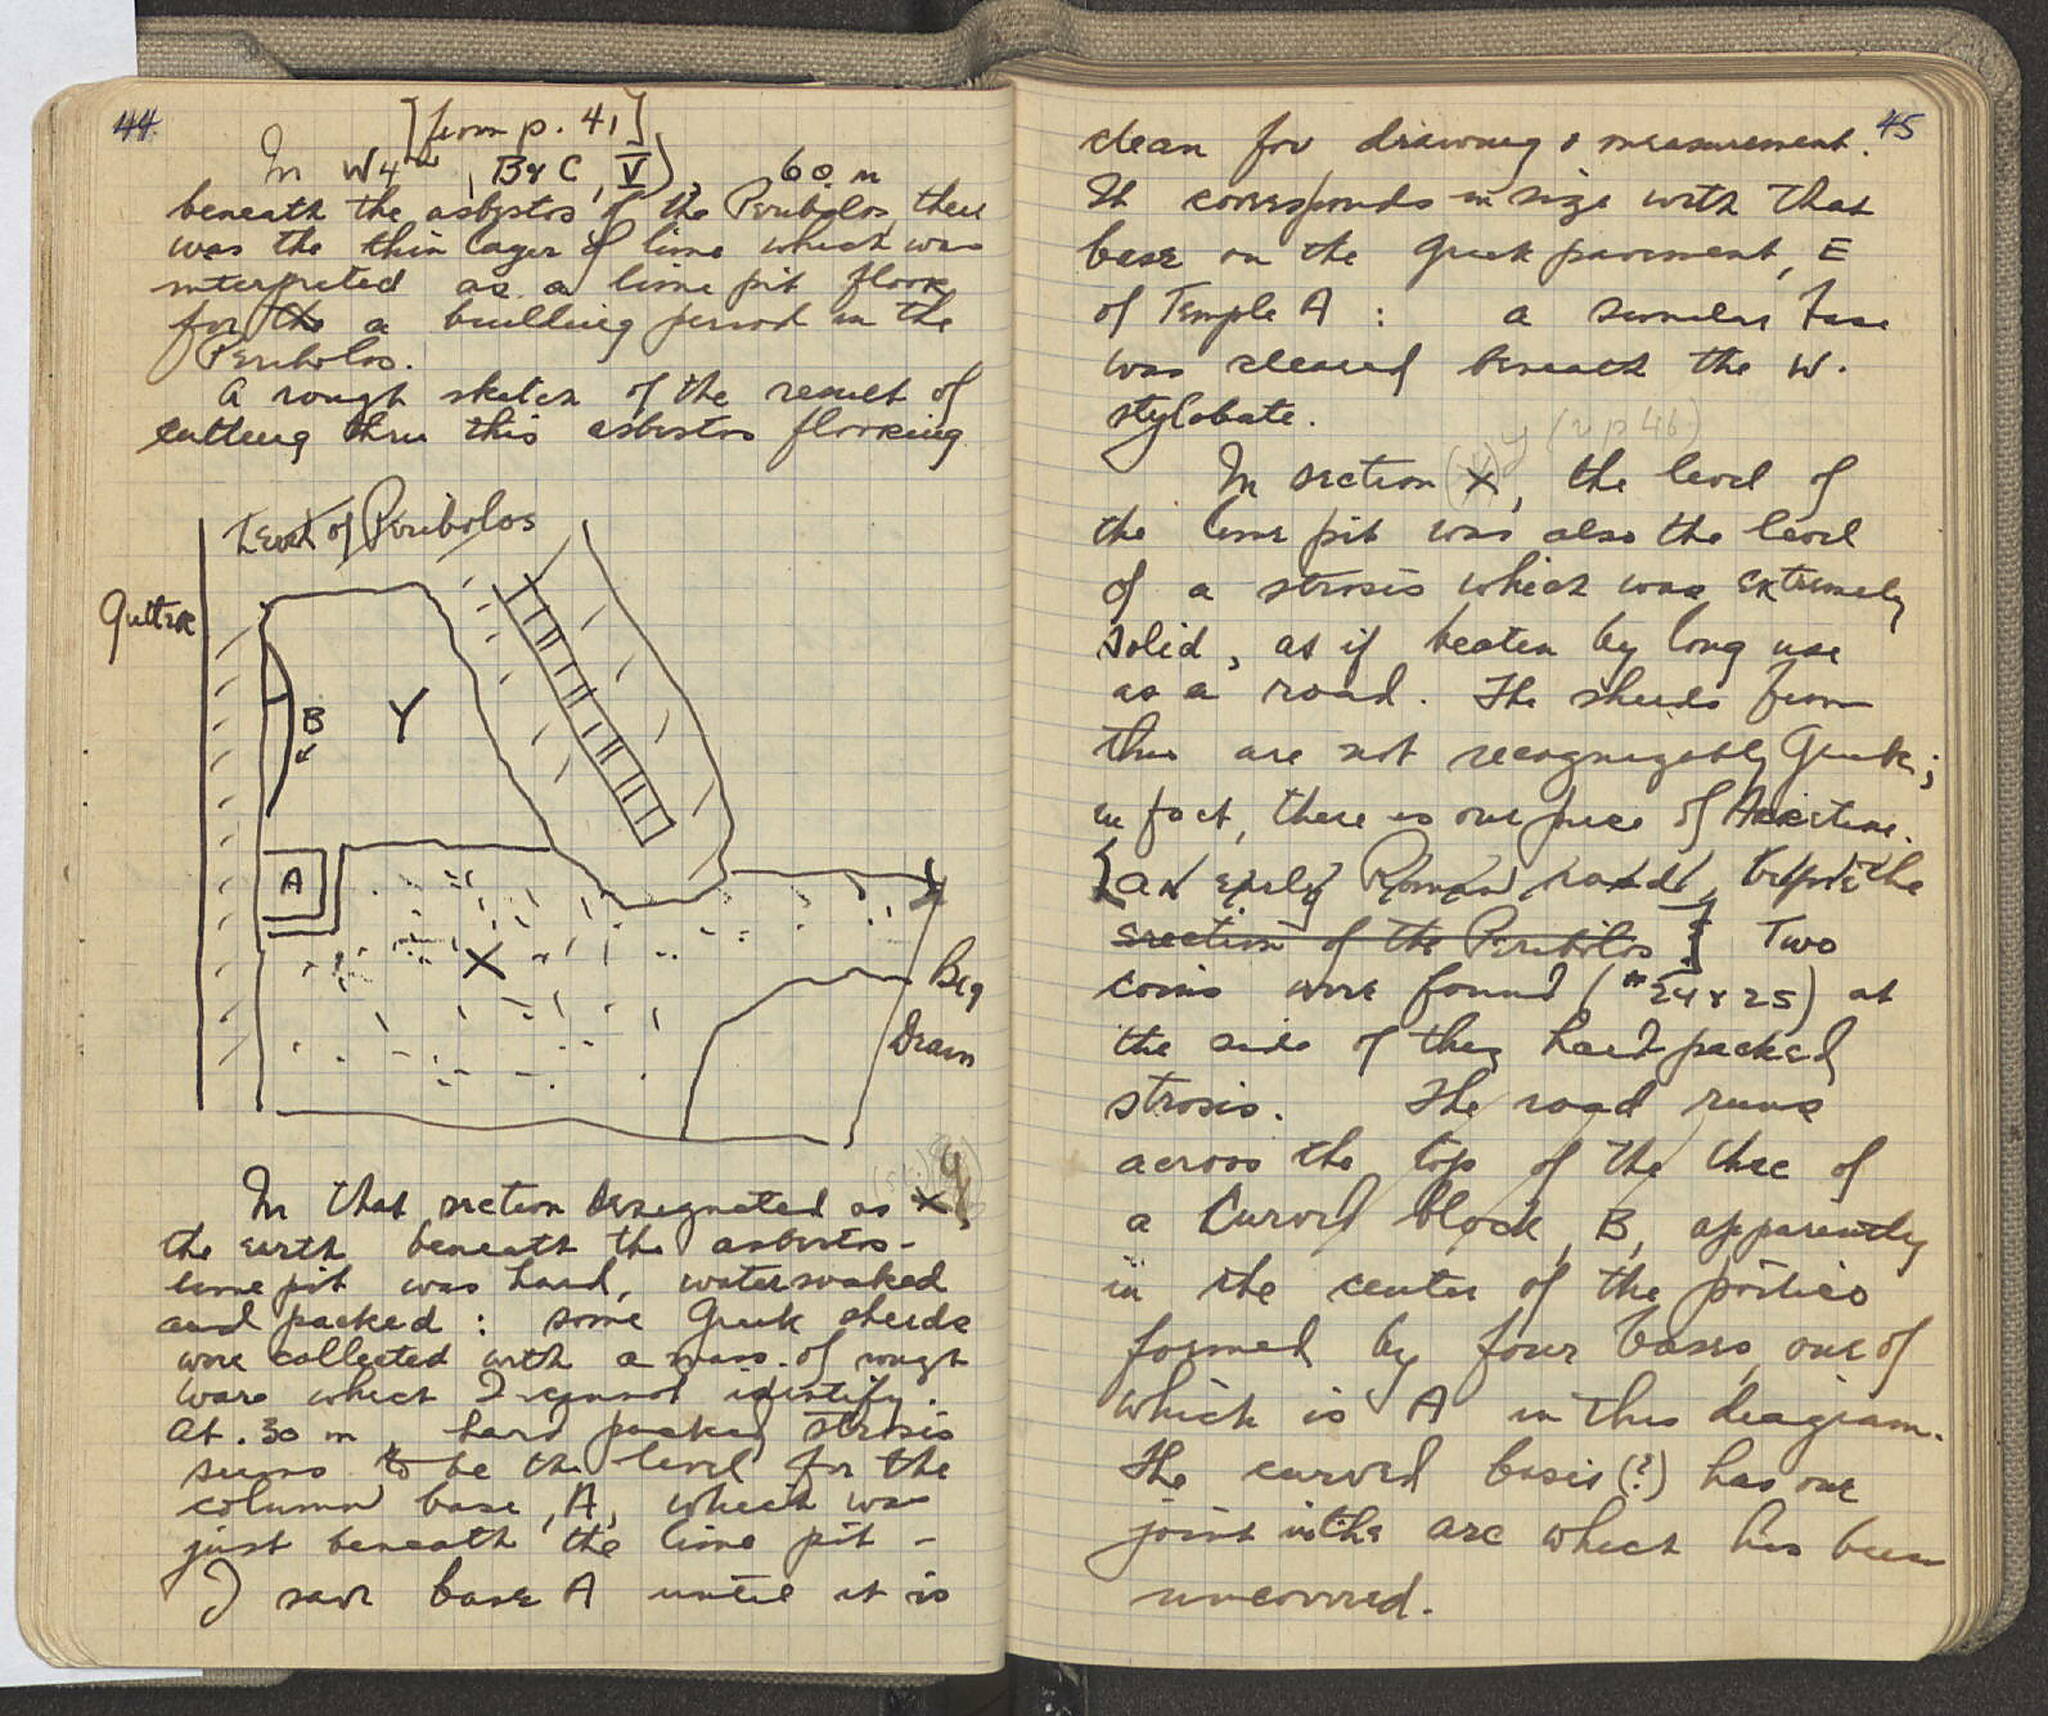 44.
[from p. 41]
In W4, B & C, V), .60 m
beneath the asbestos of the Peribolos, there
was the thin layer of lime which was
interpreted as a lime pit floor
for the a building period in the
Peribolos.
A rough sketch of the result of
cutting thru this asbestos flooring
Level of Peribolos
Gutter
B
Y
A
X
Big
Drain
In that section designated as X Y
the earth beneath the asbestos-
lime pit was hard, watersoaked
and packed : some Greek sherds
were collected with a mass of rough
ware which I cannot identify.
At .30 m, hard packed strosis
seems to be the level for the
column base, A, which was
just beneath the lime pit -
I save base A until it is
45
clean for drawing & measurement.
It corresponds in size with that
base on the Greek pavement, E
of Temple A : a similar base
was cleared beneath the W.
stylobate.
(v p 46)
In section (X) Y, the level of
the lime pit was also the level
of a strosis which was extremely
solid, as if beaten by long use
as a road. The sherds from
this are not recognizably Greek;
in fact, there is one piece of Arretine.
[an early Roman road, before the
erection of the Peribolos.] Two
coins were found (#24 & 25) at
the side of this hard packed
strosis. The road runs
across the top of the arc of
a curved block, B, apparently
in the center of the portico
formed by four bases, one of
which is A in this diagram.
The curved basis (?) has one
joint in the arc which has been
uncovered.